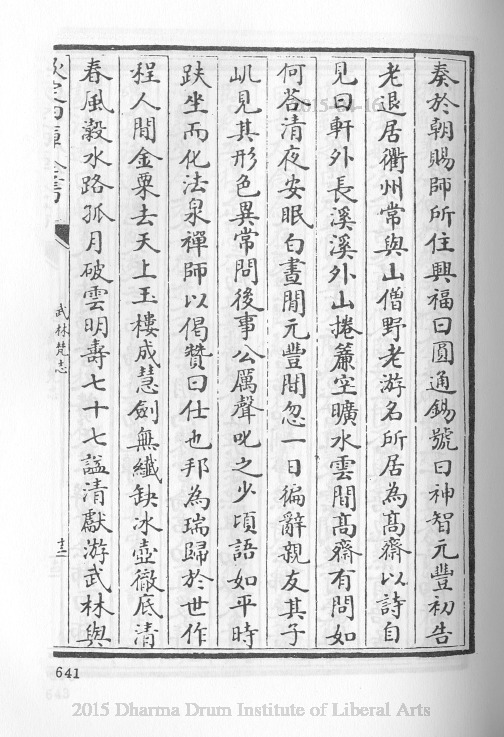 奏於朝賜師所住興福曰圓通錫號曰神智元豐初告
老退居衢州常與山僧野老游名所居為髙齋以詩自
見曰軒外長溪溪外山捲簾空曠水雲間髙齋有問如
何荅清夜安眠白晝閒元豐間忽一日徧辭親友其子
屼見其形色異常問後事公厲聲叱之少頃語如平時
趺坐而化法泉禪師以偈贊曰仕也邦為瑞歸於世作
程人間金粟去天上玉樓成慧劍無纖缺冰壺徹底清
春風瀫水路孤月破雲明壽七十七諡清獻游武林與
武林梵志
十二
641
2015 Dharma Drum Institute of Liberal Arts